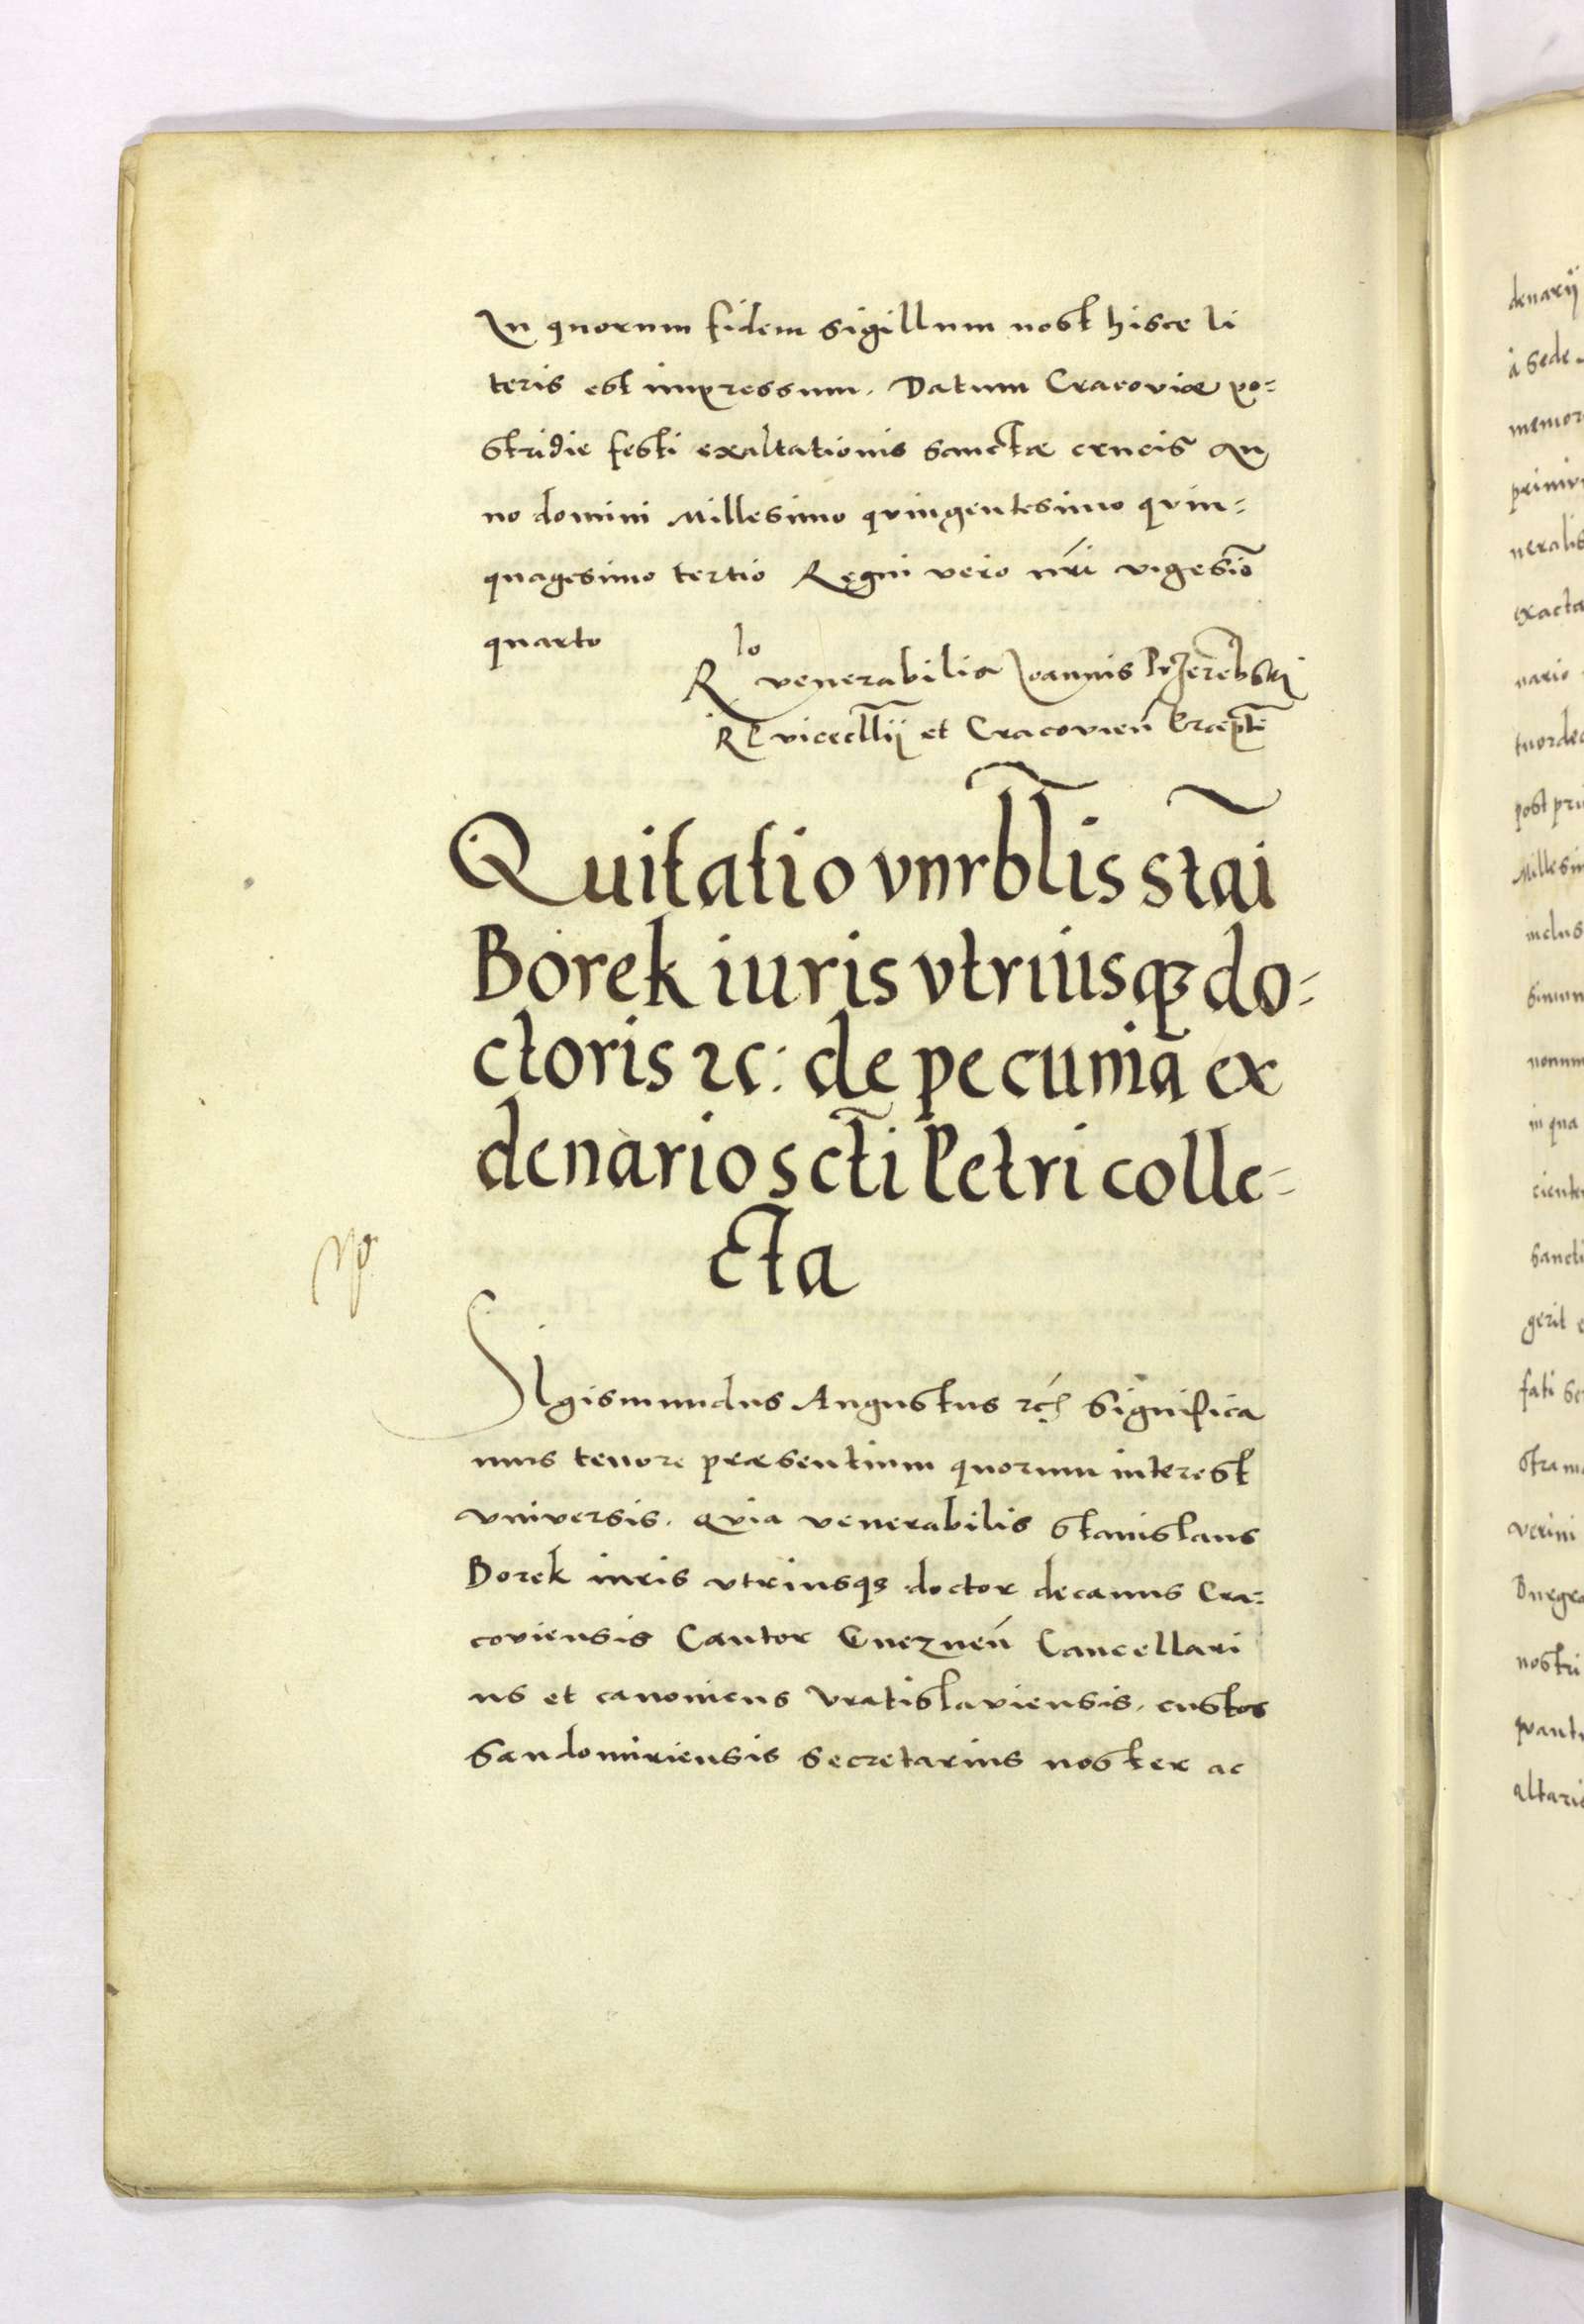 In quorum fidem sigillum nost hisce li
teris est impressum. Datum Cracoviæ po=
stridie festi exaltationis sanctæ crucis An
no domini Millesimo quingentesimo quin=
quagesimo tertio Regni vero nri vigesio
quarto
Rlo venerabilis Joannis Przerebski
R P vicecllij et Cracovien
Quitatio vnrblis stai
Borek iuris vtriusq3 do=
ctoris 2c: de pecunia ex
denario scti Petri colle=
cta
SIgismundus Augustus 2c Significa
mus tenore præsentium quorum interest
vniversis. quia venerabilis Stanislaus
Borek iuris vtriusq3 doctor decanus Cra=
coviensis Cantor Gneznen Cancellari
us et canonicus Vratislaviensis. custos
Sandomiriensis Secretarius noster ac
denarij
à sede
memor
primi
neralis
exacta
nario
tuorde
post pri
Millesi
inclus
nonum
in qua
ciente
Sancti
gerit
fati
stra
verini
Burgra
nostri
altaris